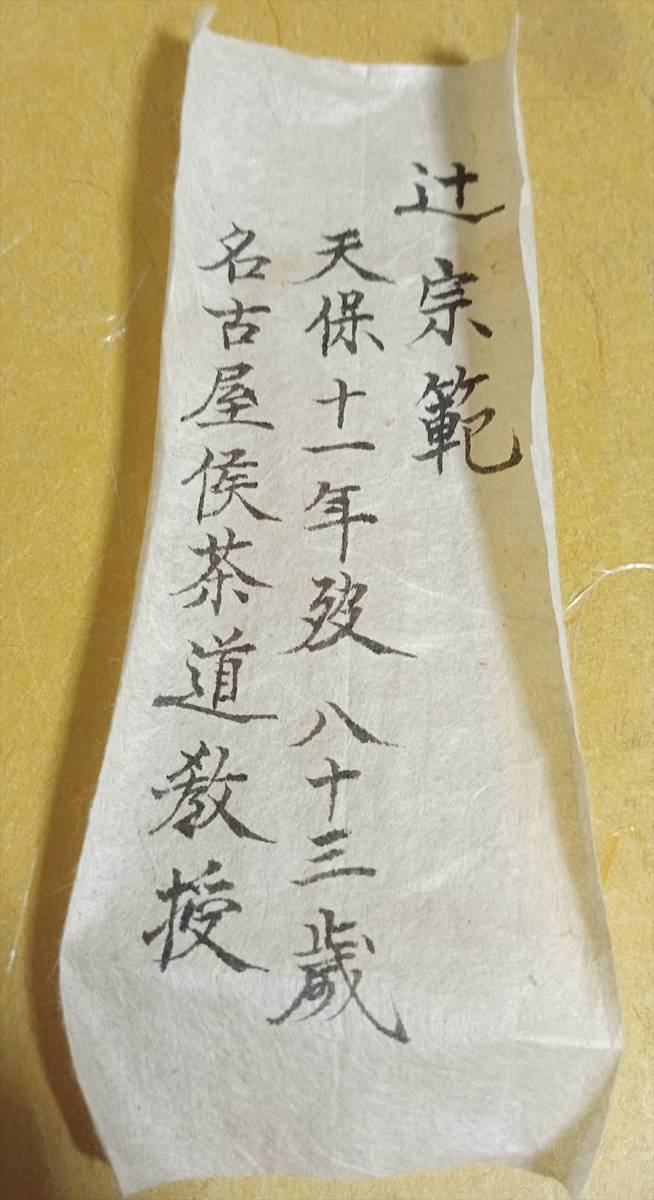 辻宗範
天保十一年歿 八十三歳
名古屋侯茶道教授